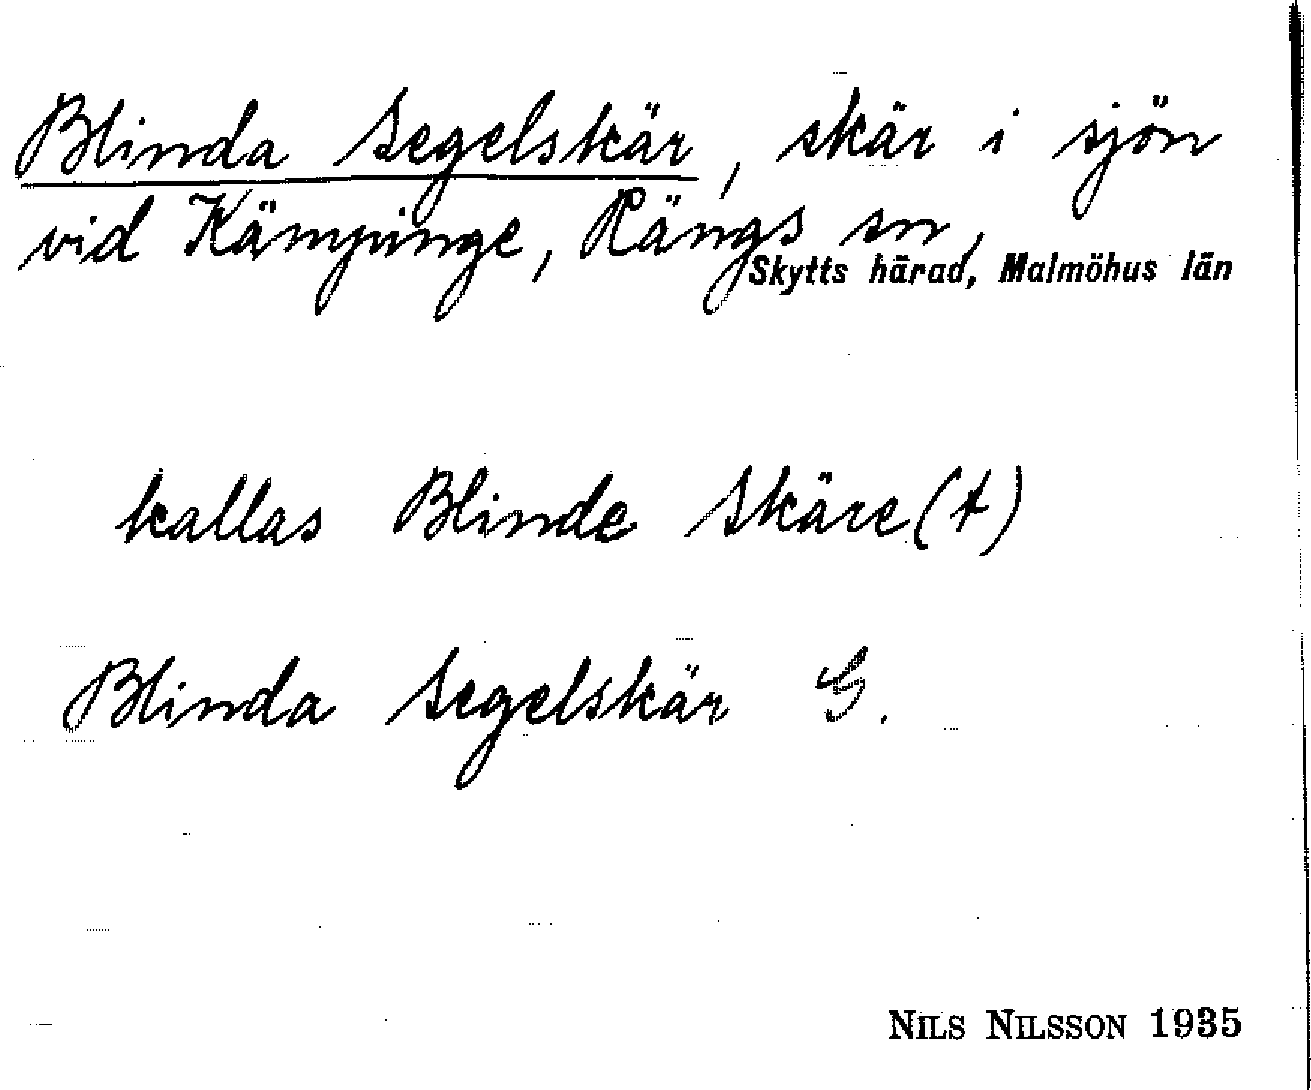 Blinda Segelskär, skär i sjön
vid Kämpinge, Rängs sn,
Skytts härad, Malmöhus län
kallas Blinde Skäre(t)
Blinda Segelskär G.
NILS NILSSON 1935